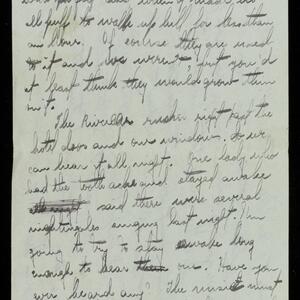 all puff to walk up hill for less than
an hour. Of course they are used
to it and we weren't but you'd
at least think they would grow thin
on it.
The River rushes right past the
hotel door and our window. So we
can hear it all night. One lady who
had the tooth ache and stayed awake
all night said there were several
nightingales singing last night. I'm
going to try to stay awake long
enough to hear them one. Have you
ever heard any? The music must